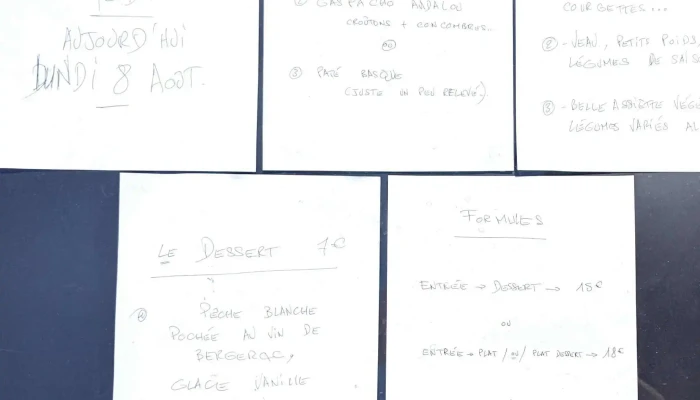 AUJOURD'HUI
LUNDI 8 AOÛT.
② GASPACHO ANDALOU
CROÛTONS + CONCOMBRES..
OU
③ PATÉ BASQUE
(JUSTE UN PEU RELEVÉ).
COURGETTES...
② - VEAU, PETITS POIDS,
LÉGUMES DE SAIS
③ - BELLE ASSIETTE VÉGÉ
LÉGUMES VARIÉS AL
LE DESSERT 7€
PÊCHE BLANCHE
POCHÉE AU VIN DE
BERGERAC,
GLACE VANILLE
FORMULES
ENTRÉE → DESSERT → 15€
OU
ENTRÉE → PLAT / OU / PLAT DESSERT → 18€